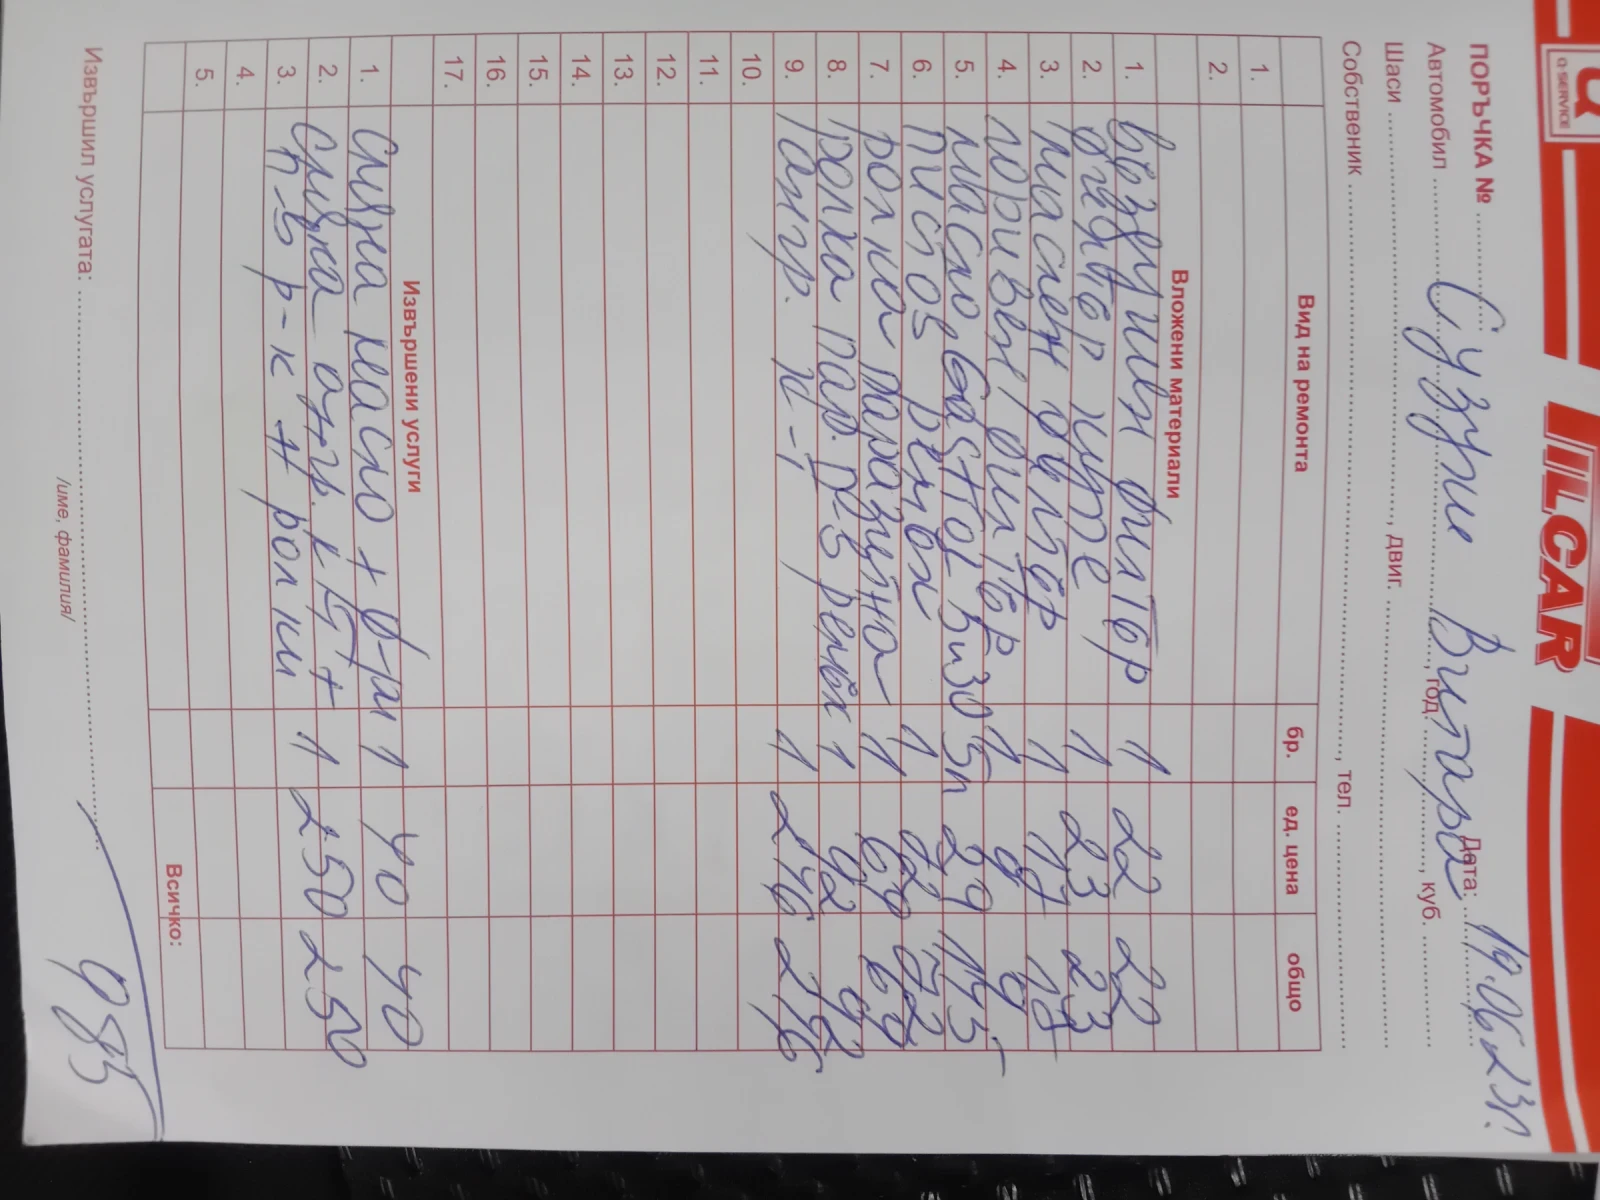 Q-SERVICE
ILCAR
ПОРЪЧКА № Дата: 19.06.23г.
Автомобил Сузуки Витара, год., куб.
Шаси, двиг.
Собственик, тел.
Вид на ремонта бр. ед. цена общо
1.
2.
Вложени материали
1. въздушен филтър 1 22 22
2. филтър купе 1 23 23
3. маслен филтър 1 17 17
4. горивен филтър 1
5. масло castrol 5w30 5л 29 145
6. пистов ремък 1
7. ролка паразитна 1 69 69
8. ролка пар. п-в ремък 1 92 92
9. к-т 1 246 246
10.
11.
12.
13.
14.
15.
16.
17.
Извършени услуги
1. Смяна масло + ф-ри 1 40 40
2. Смяна + 1 250 250
3. п-в р-к + ролки
4.
5.
Всичко:
985
Извършил услугата:
/име, фамилия/